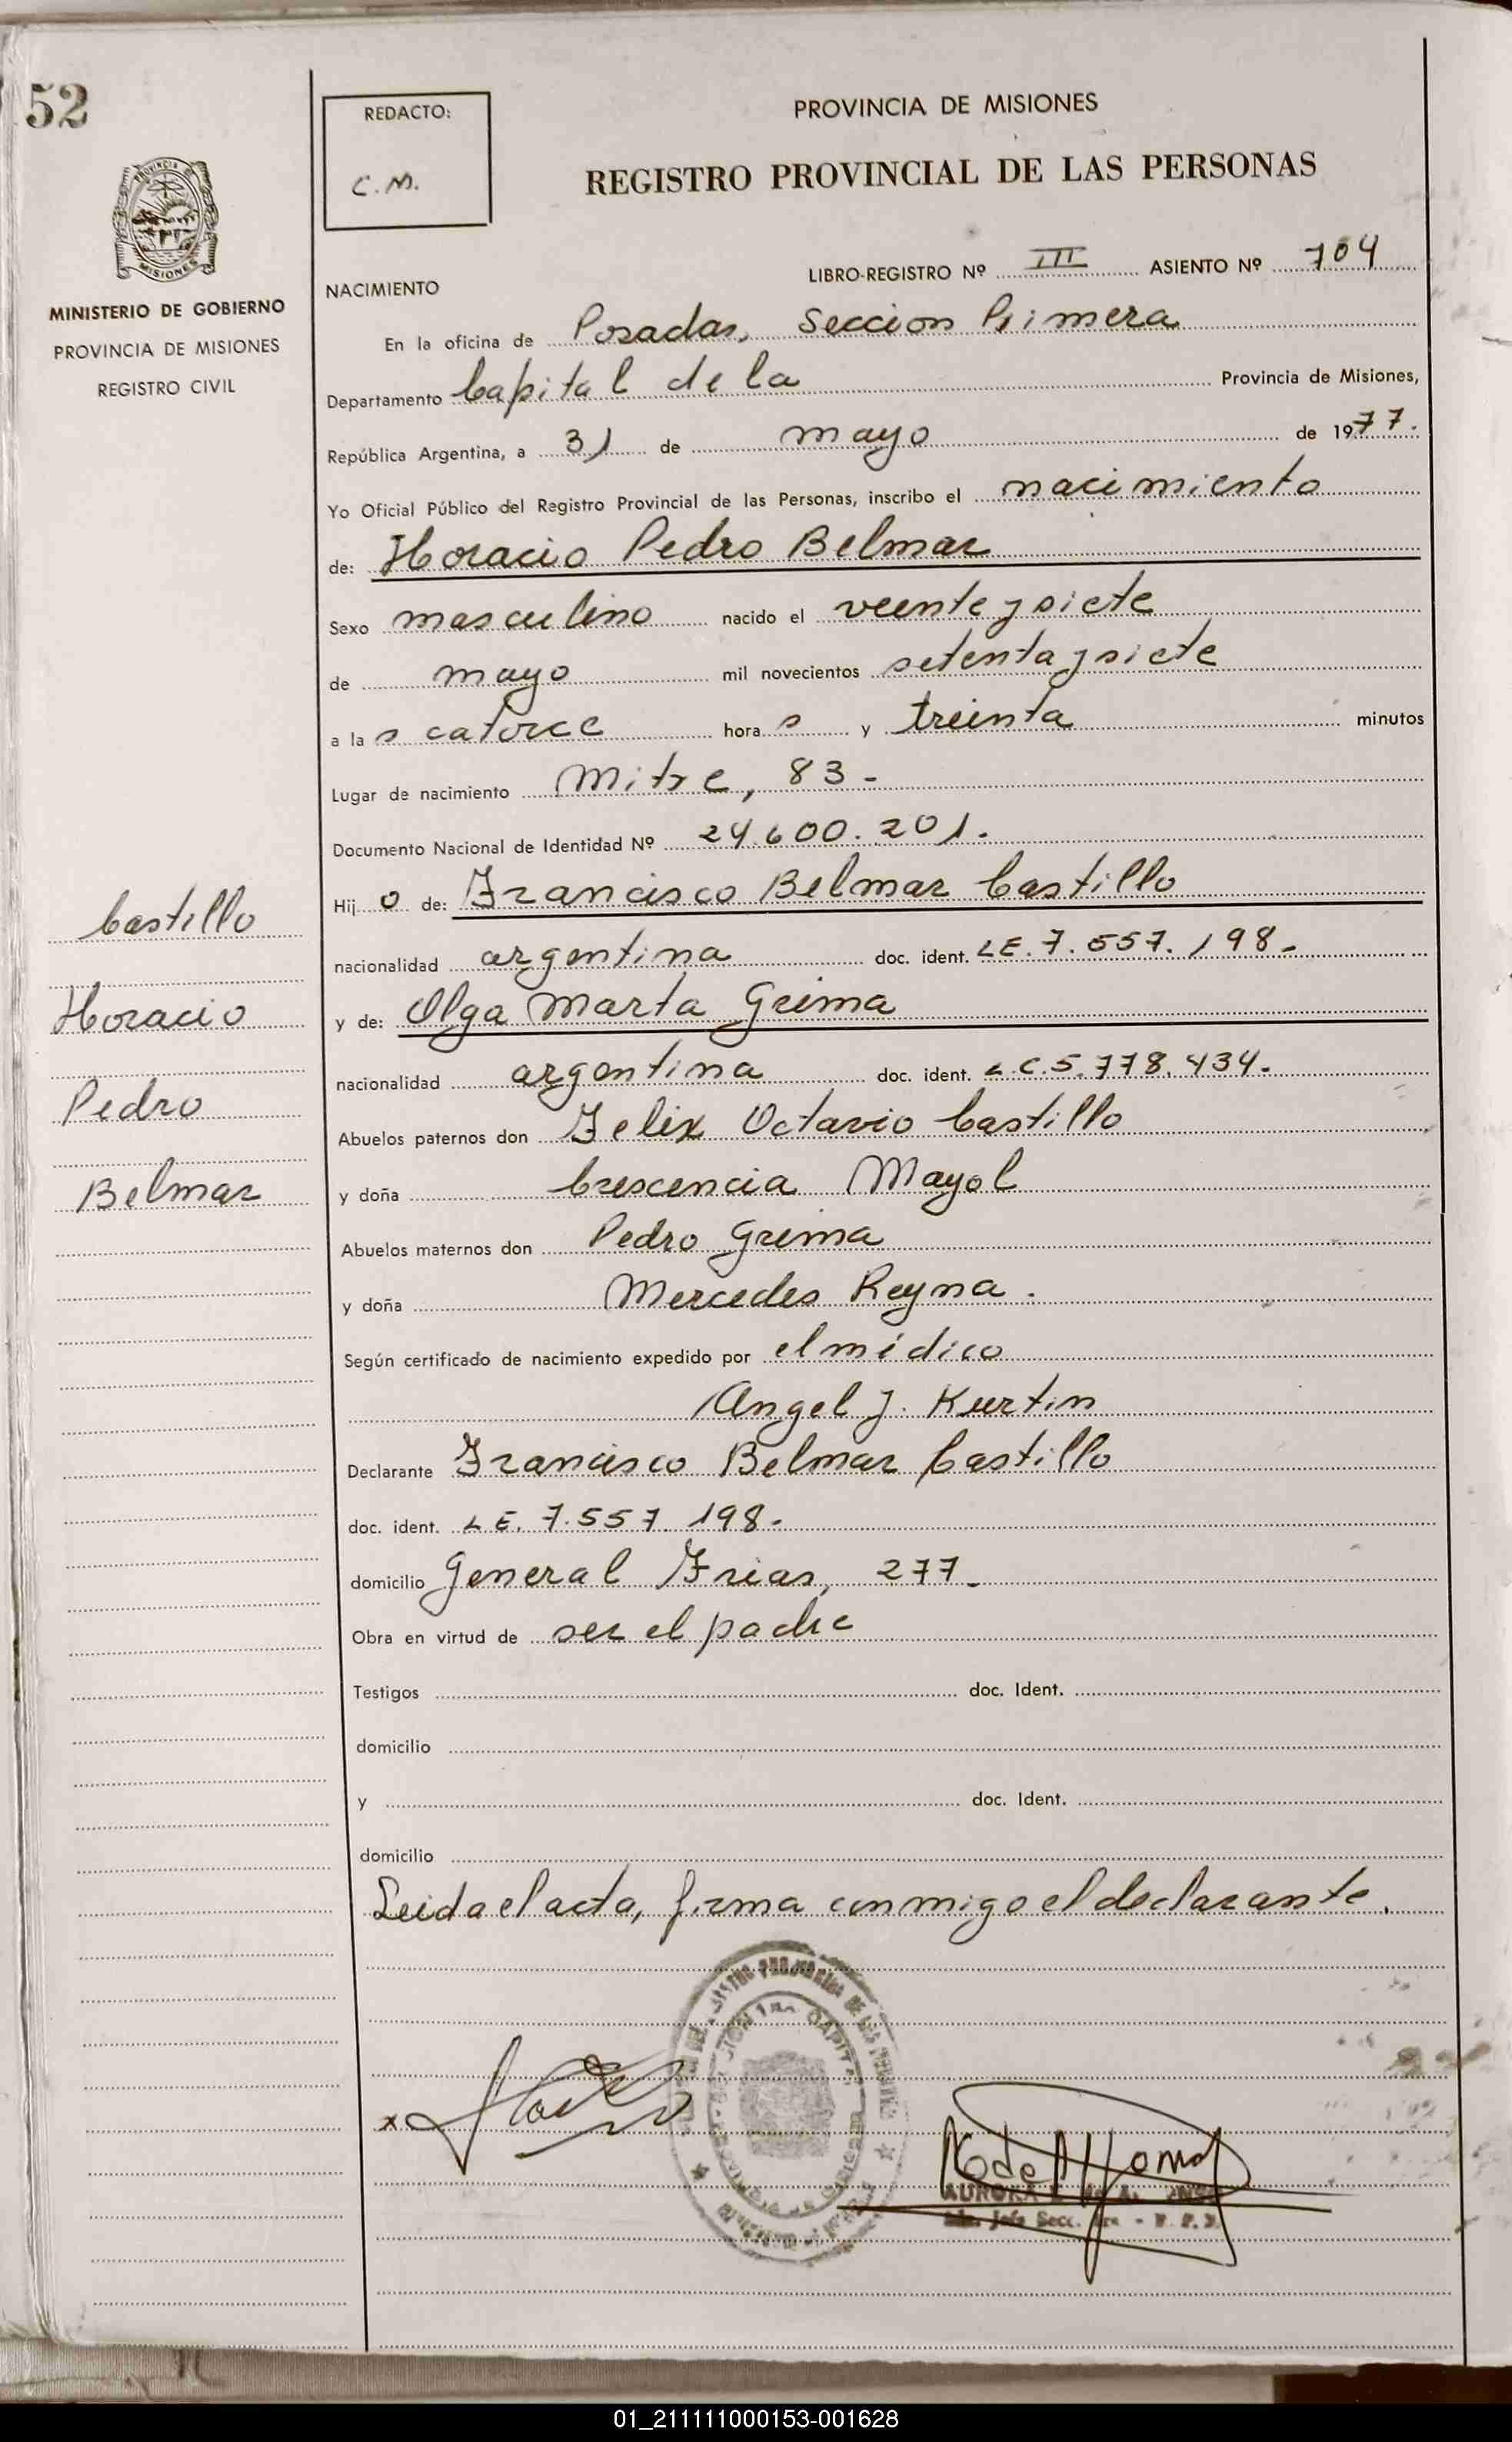 52
REDACTO:
C.M.
PROVINCIA DE MISIONES
REGISTRO PROVINCIAL DE LAS PERSONAS
PROVINCIA
MISIONES
MINISTERIO DE GOBIERNO
PROVINCIA DE MISIONES
REGISTRO CIVIL
LIBRO-REGISTRO Nº III ASIENTO Nº 704
NACIMIENTO
En la oficina de Posadas, Seccion Primera
Departamento Capital de la Provincia de Misiones,
República Argentina, a 31 de mayo de 1977.
Yo Oficial Público del Registro Provincial de las Personas, inscribo el nacimiento
de: Horacio Pedro Belmar
Sexo masculino nacido el veinte y siete
de mayo mil novecientos setenta y siete
a la s catorce hora s y treinta minutos
Lugar de nacimiento Mitre, 83-
Documento Nacional de Identidad Nº 24.600.201.
Hij o de: Francisco Belmar Castillo
nacionalidad argentina doc. ident. LE. 7.557.198-
y de: Olga Marta Greima
nacionalidad argentina doc. ident. L.C. 5.778.434.
Abuelos paternos don Felix Octavio Castillo
y doña Crescencia Mayol
Abuelos maternos don Pedro Greima
y doña Mercedes Reyna.
Según certificado de nacimiento expedido por el médico
Angel J. Kurtin
Declarante Francisco Belmar Castillo
doc. ident. LE. 7.557.198-
domicilio General Frias, 277-
Obra en virtud de ser el padre
Testigos doc. Ident.
domicilio
y doc. Ident.
domicilio
Leida el acta, firma conmigo el declarante.
Castillo
Horacio
Pedro
Belmar
x
AURORA
Jefe Secc. 1ra - R.P.P.
01_211111000153-001628